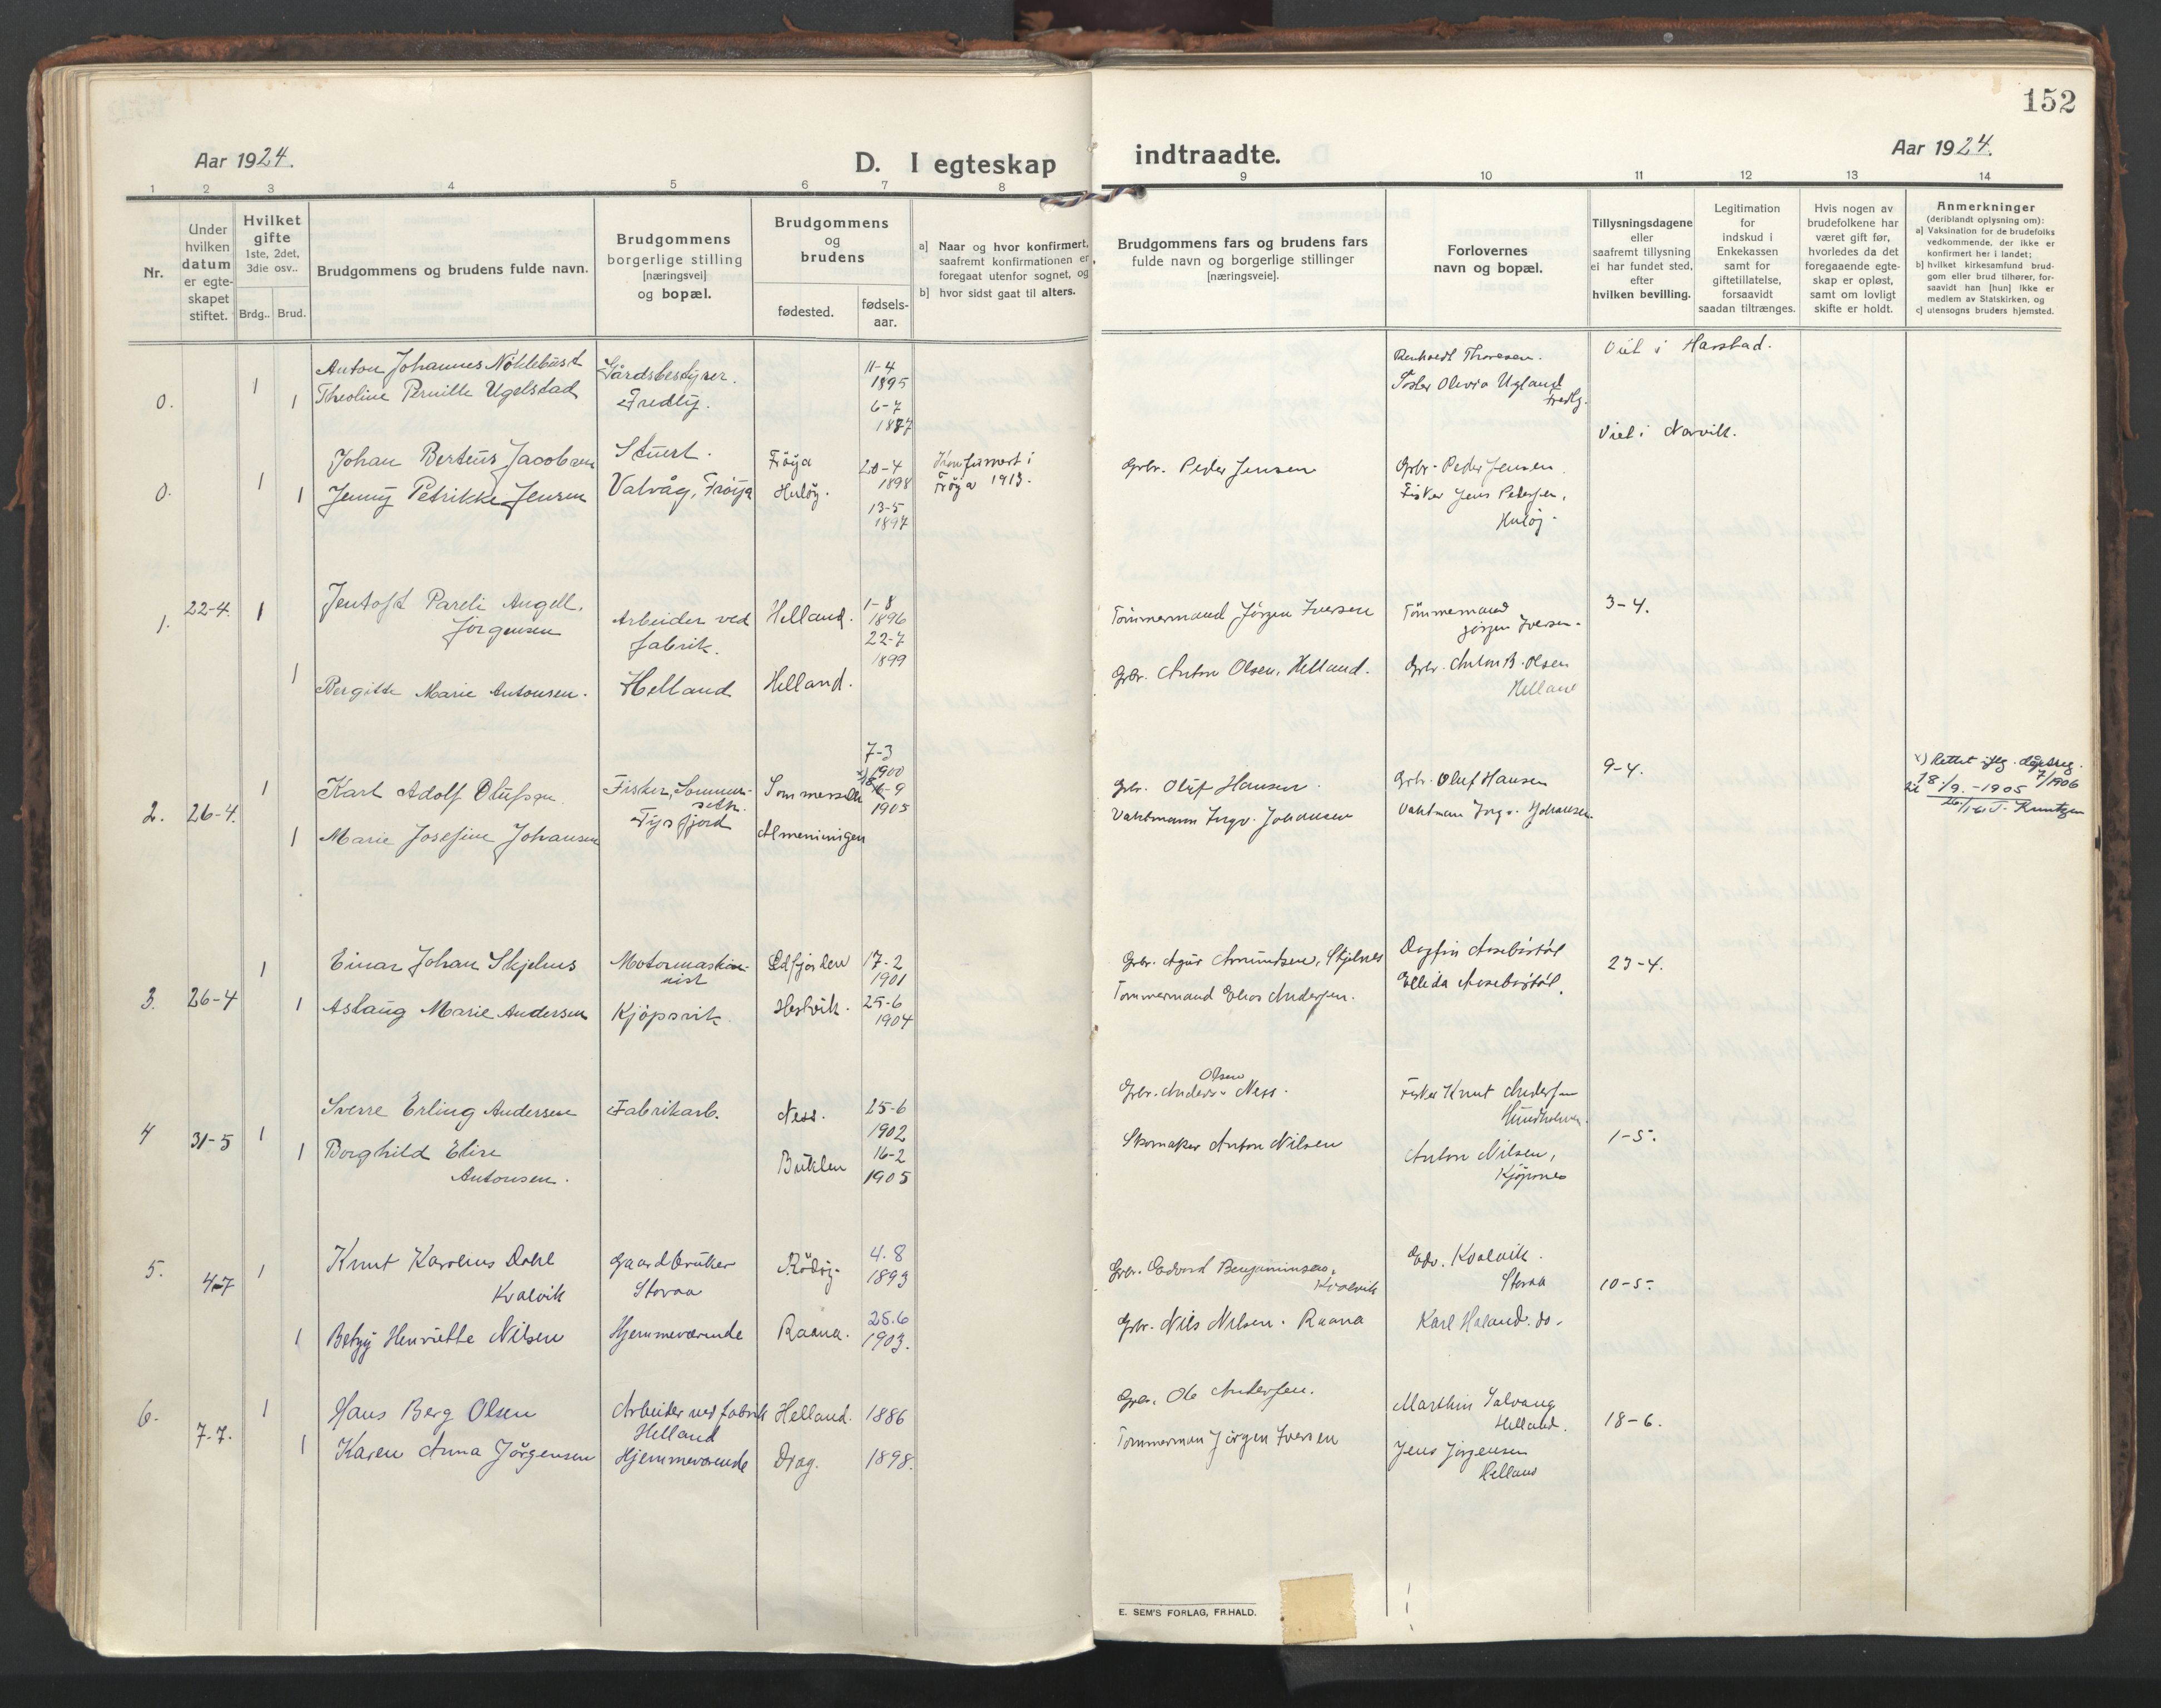 152
Aar 1924.
D. I egteskap
indtraadte.
Aar 1924.
1 2 3 4 5 6 7 8 9 10 11 12 13 14
Nr.
Under
hvilken
datum
er egte-
skapet
stiftet.
Hvilket
gifte
1ste, 2det,
3die osv..
Brdg.. Brud.
Brudgommens og brudens fulde navn.
Brudgommens
borgerlige stilling
[næringsvei]
og bopæl.
Brudgommens
og
brudens
fødested.
fødsels-
aar.
a] Naar og hvor konfirmert,
saafremt konfirmationen er
foregaat utenfor sognet, og
b] hvor sidst gaat til alters.
Brudgommens fars og brudens fars
fulde navn og borgerlige stillinger
[næringsveie].
Forlovernes
navn og bopæl.
Tillysningsdagene
eller
saafremt tillysning
ei har fundet sted,
efter
hvilken bevilling.
Legitimation
for
indskud i
Enkekassen
samt for
giftetillatelse,
forsaavidt
saadan tiltrænges.
Hvis nogen av
brudefolkene har
været gift før,
hvorledes da det
foregaaende egte-
skap er opløst,
samt om lovligt
skifte er holdt.
Anmerkninger
(deriblandt oplysning om):
a] Vaksination for de brudefolks
vedkommende, der ikke er
konfirmert her i landet;
b] hvilket kirkesamfund brud-
gom eller brud tilhører, for-
saavidt han [hun] ikke er
medlem av Statskirken, og
c] utensogns bruders hjemsted.
0.
1
1
Anton Johannes Nöklebust
Theoline Pernille Ugelstad
Gårdsbestyrer.
Fredly.
11-4
1895
6-7
Thoresen.
Olevia Ugland
Viet i Harstad.
0.
1
1
Johan Berteus Jacobsen
Jenny Petrikke Jensen
Stuert.
Valvåg, Fröya
Fröya
Hulöy.
20-4
1898
13-5
1897
Konfirmert i
Fröya 1913.
Grbr. Peder Jensen
Grbr. Peder Jensen.
Fisker Jens Pedersen,
Hulöy.
Viet i Narvik.
1.
22-4.
1
1
Jentoft Pareli Angell.
Jörgensen
Bergitte Marie Antonsen.
Arbeider ved
fabrik.
Helland
Helland.
Helland.
1-8
1896
22-7
1899
Tömmermand Jörgen Iversen
Grbr. Anton Olsen, Helland.
Tömmermand
Jörgen Iversen.
Grbr. Anton B. Olsen
Helland
3-4.
2.
26-4.
1
1
Karl Adolf Olufsen.
Marie Josefine Johansen
Fisker, Sommer-
seth.
Tysfjord
Sommerseth
Almenningen
7-3
1900
1905
Grbr. Oluf Hansen.
Vaktmann Ingv. Johansen
Grbr. Oluf Hansen
Vaktman Ingv. Johansen.
9-4.
x) Rettet iflg. dåpsreg.
7/1906
18/9.-1905
Knutzen
3.
26-4
1
1
Einar Johan Skjelnes
Aslaug Marie Andersen
Motormaskin-
nist
Kjöpsvik.
Edfjorden
Hestvik.
17-2
1901
25-6
1904
Grbr. Agur Amundsen, Skjelnes
Tommermand Elias Andersen.
Dagfin Assebøstöl
Ellida Assebøstöl.
23-4.
4
31-5
1
1
Sverre Erling Andersen
Borghild Elise
Antonsen.
Fabrikarb.
Ness.
Buklen
25-6
1902
16-2
1905
Olsen
Grbr. Anders Ness.
Skomaker Anton Nilsen
Fisker Knut Andersen
Hundholmen.
Anton Nilsen,
Kjöpsnes
1-5.
5.
4-7
1
1
Knut Karolius Dahl
Kvalvik
Betzy Henriette Nilsen
Gaardbruker
Storaa
Hjemmeværende
Rödöy
Raana.
4.8
1893
25.6
1903.
Grbr. Edvard Benjaminsen,
Kvalvik
Grbr. Nils Nilsen. Raana
Edv. Kvalvik.
Storaa
Karl Haland. do.
10-5.
6.
7-7.
1
1
Hans Berg Olsen
Karen Anna Jörgensen
Arbeider ved fabrik
Helland
Hjemmeværende
Helland.
Drag.
1886
1898.
Grbr. Ole Andersen.
Tommerman Jörgen Iversen
Marthin Salvaag
Helland.
Jens Jörgensen
Helland
18-6.
E. SEM'S FORLAG, FR.HALD.